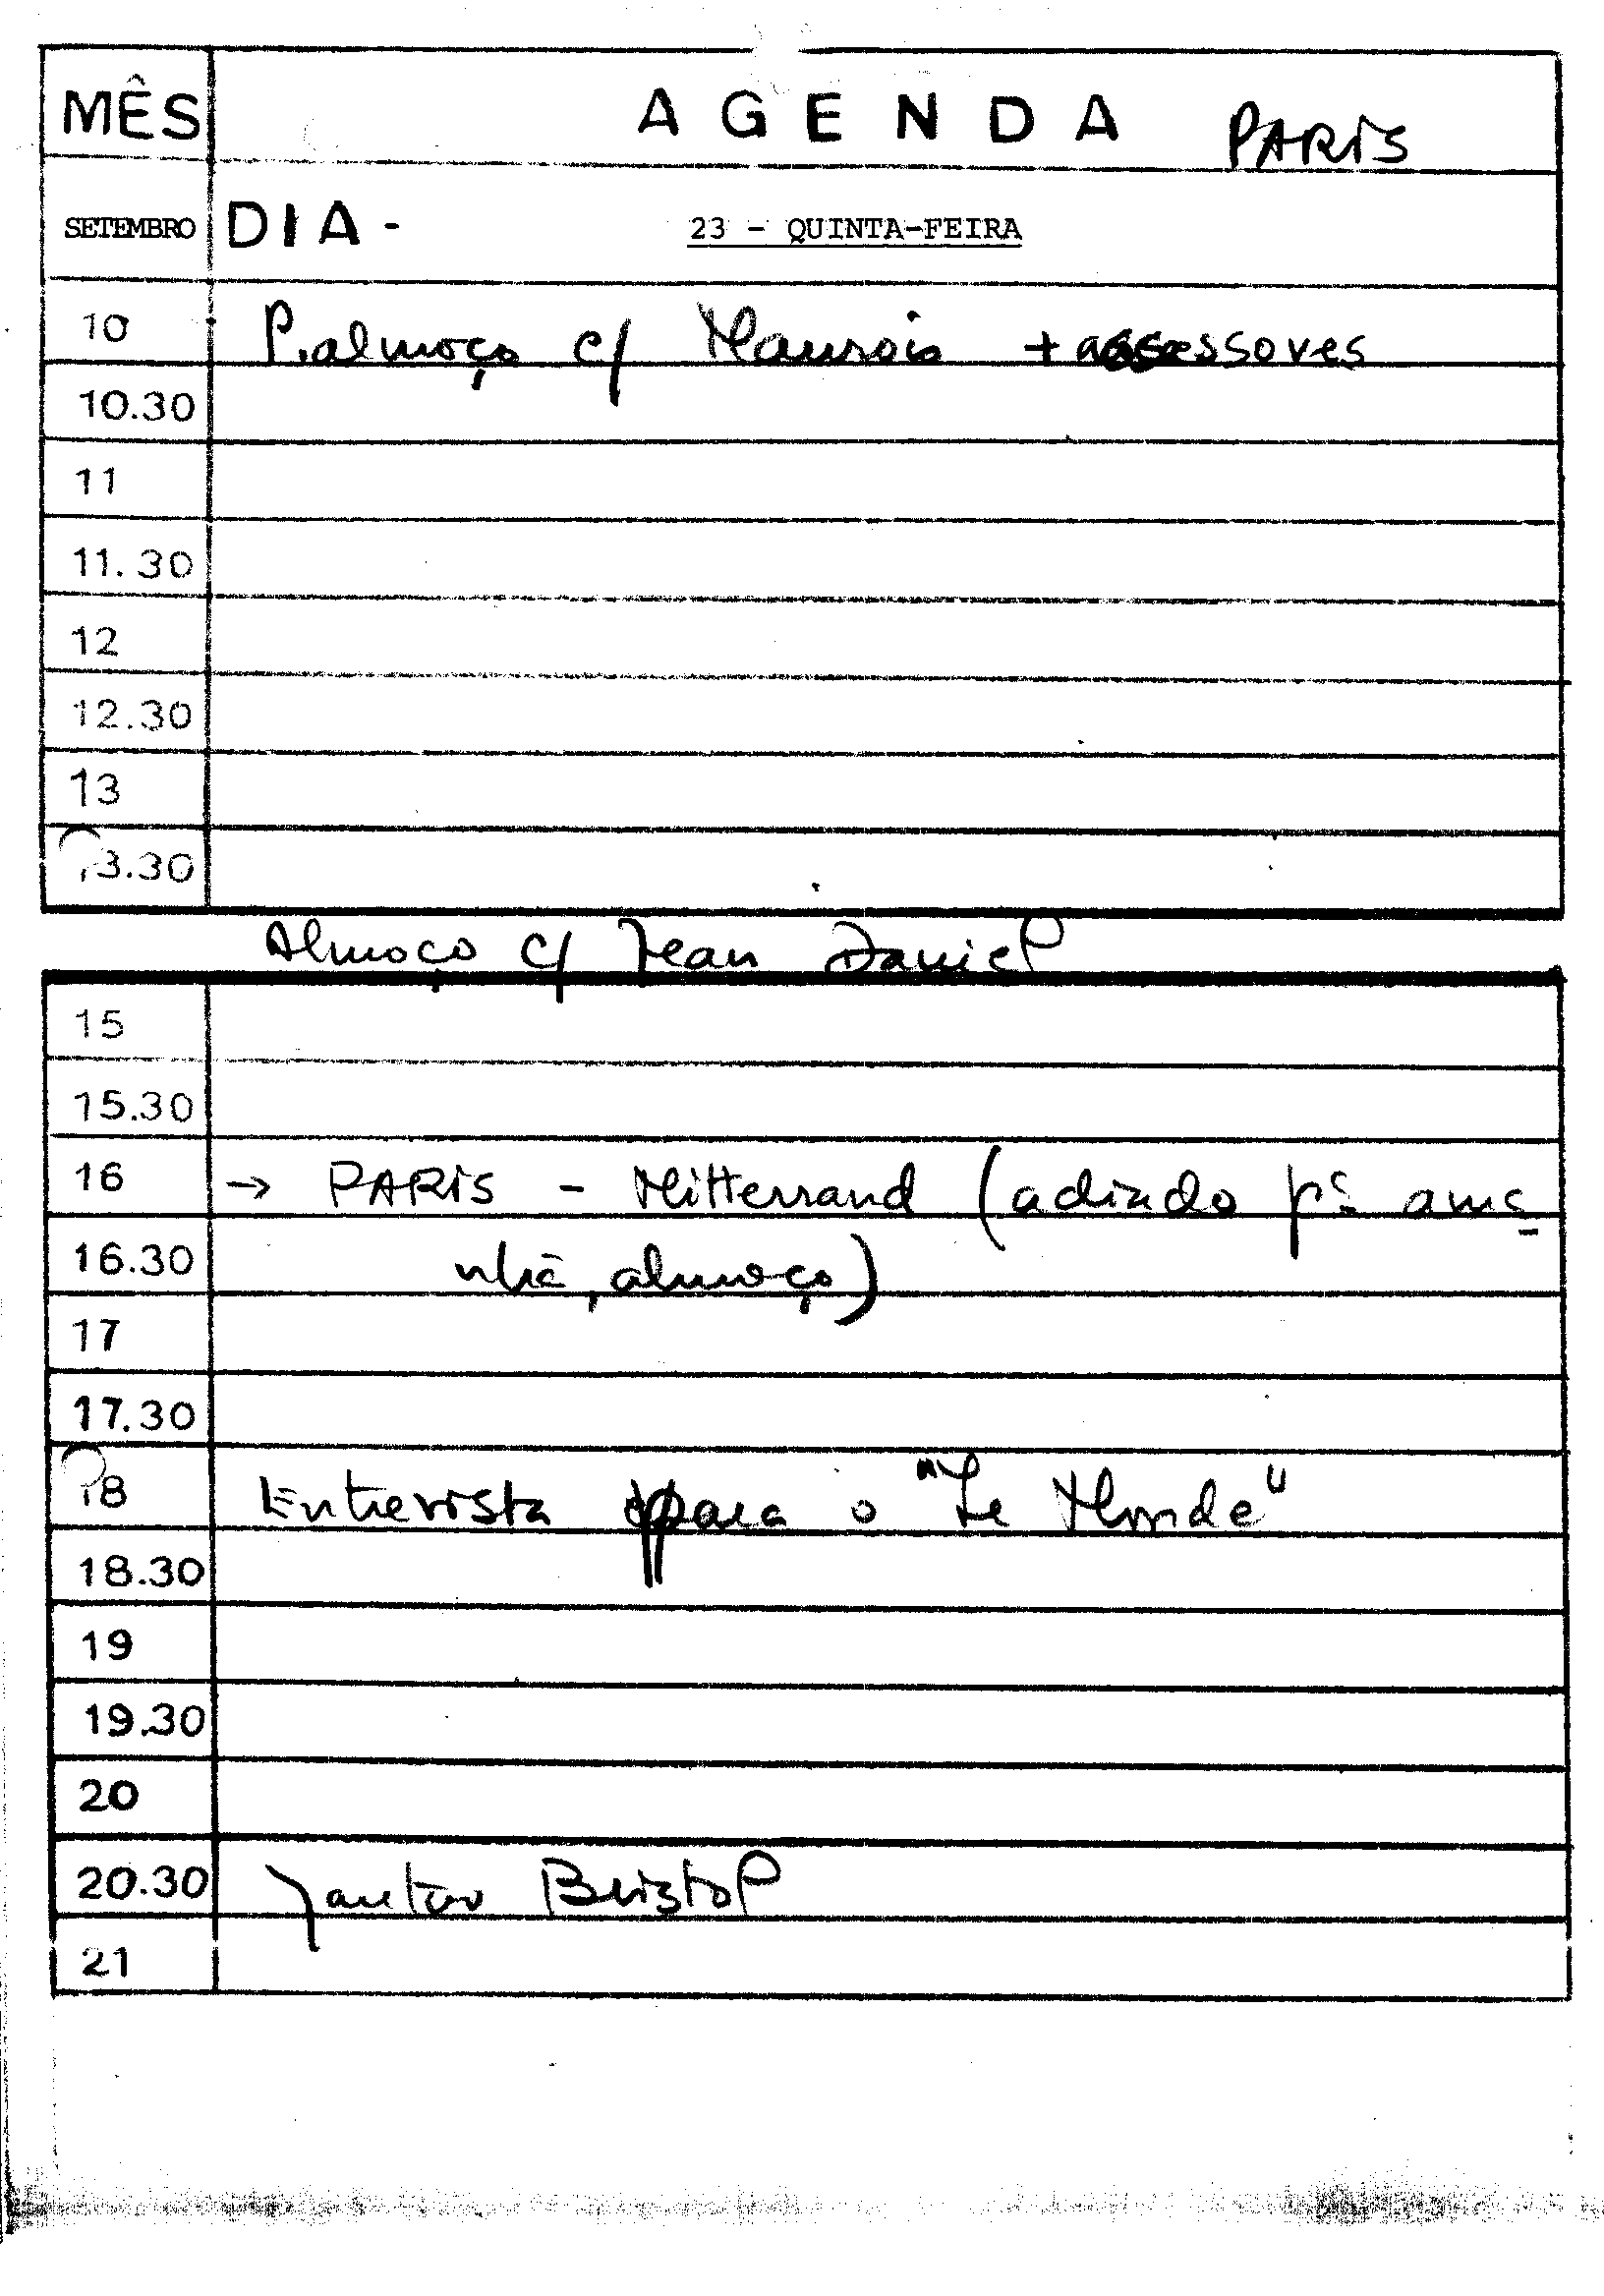 MÊS AGENDA PARIS
SETEMBRO DIA - 23 - QUINTA-FEIRA
10 P. almoço c/ Maurois + assessores
10.30
11
11.30
12
12.30
13
13.30
Almoço c/ Jean Daniel
15
15.30
16 → PARIS - Mitterrand (adiado pª ama
16.30 nhã, almoço)
17
17.30
18 Entrevista para o "Le Monde"
18.30
19
19.30
20
20.30 Jantar Bristol
21